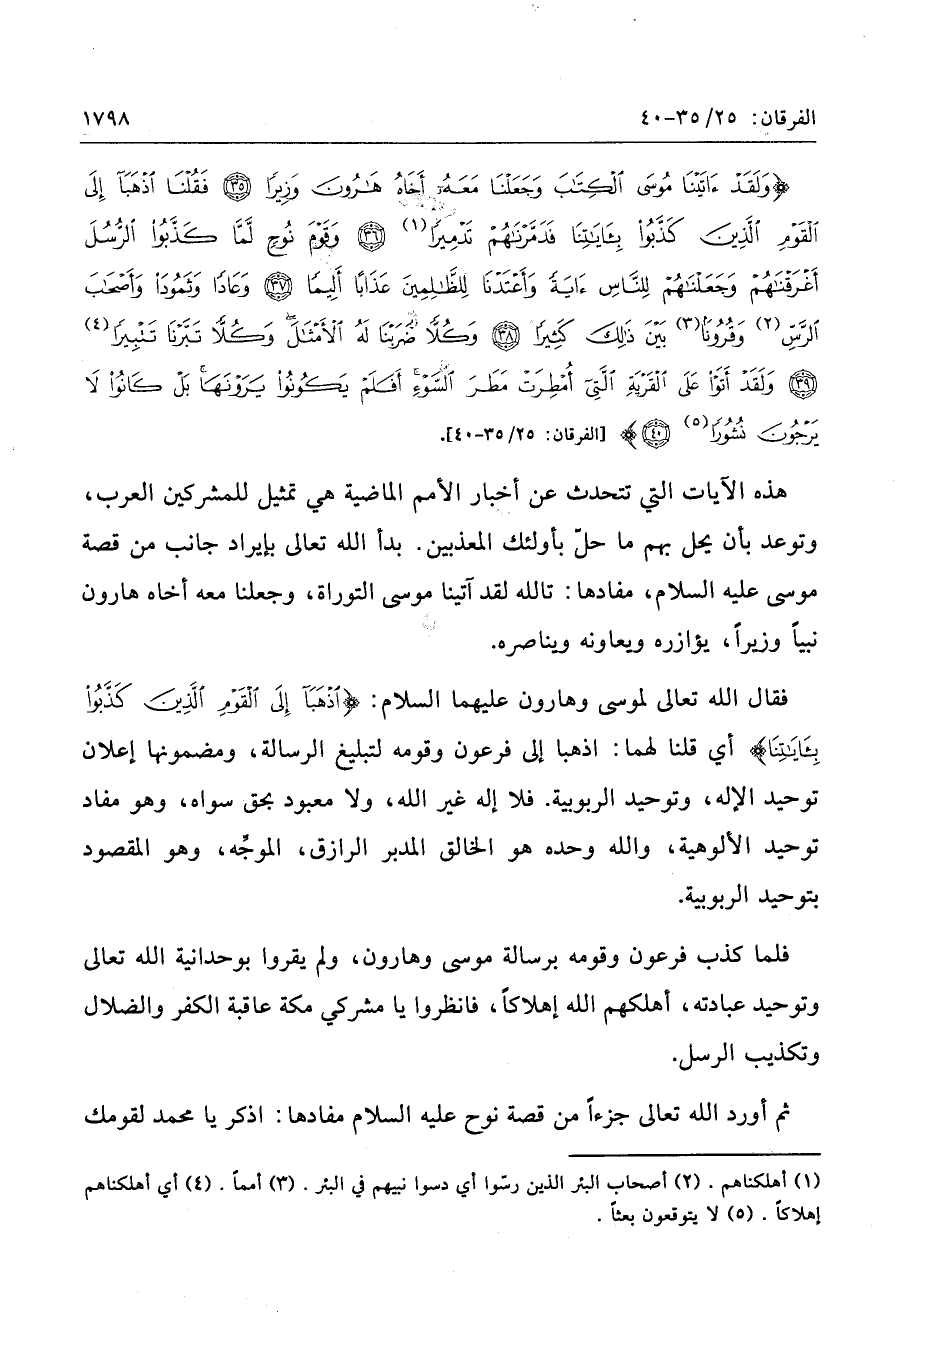 الفرقان: ٢٥/ ٣٥-٤٠ ١٧٩٨
﴿وَلَقَدْ ءَاتَيْنَا مُوسَى ٱلْكِتَٰبَ وَجَعَلْنَا مَعَهُۥٓ أَخَاهُ هَٰرُونَ وَزِيرًا ٣٥ فَقُلْنَا ٱذْهَبَآ إِلَى
ٱلْقَوْمِ ٱلَّذِينَ كَذَّبُوا۟ بِـَٔايَٰتِنَا فَدَمَّرْنَٰهُمْ تَدْمِيرًا(١) ٣٦ وَقَوْمَ نُوحٍ لَّمَّا كَذَّبُوا۟ ٱلرُّسُلَ
أَغْرَقْنَٰهُمْ وَجَعَلْنَٰهُمْ لِلنَّاسِ ءَايَةً وَأَعْتَدْنَا لِلظَّٰلِمِينَ عَذَابًا أَلِيمًا ٣٧ وَعَادًا وَثَمُودَا۟ وَأَصْحَٰبَ
ٱلرَّسِّ(٢) وَقُرُونًۢا(٣) بَيْنَ ذَٰلِكَ كَثِيرًا ٣٨ وَكُلًّا ضَرَبْنَا لَهُ ٱلْأَمْثَٰلَ ۖ وَكُلًّا تَبَّرْنَا تَتْبِيرًا(٤)
٣٩ وَلَقَدْ أَتَوْا۟ عَلَى ٱلْقَرْيَةِ ٱلَّتِىٓ أُمْطِرَتْ مَطَرَ ٱلسَّوْءِ ۚ أَفَلَمْ يَكُونُوا۟ يَرَوْنَهَا ۚ بَلْ كَانُوا۟ لَا
يَرْجُونَ نُشُورًا(٥) ٤٠﴾ [الفرقان: ٢٥/ ٣٥-٤٠].
هذه الآيات التي تتحدث عن أخبار الأمم الماضية هي تمثيل للمشركين العرب،
وتوعد بأن يحل بهم ما حلّ بأولئك المعذبين. بدأ الله تعالى بإيراد جانب من قصة
موسى عليه السلام، مفادها: تالله لقد آتينا موسى التوراة، وجعلنا معه أخاه هارون
نبياً وزيراً، يؤازره ويعاونه ويناصره.
فقال الله تعالى لموسى وهارون عليهما السلام: ﴿ٱذْهَبَآ إِلَى ٱلْقَوْمِ ٱلَّذِينَ كَذَّبُوا۟
بِـَٔايَٰتِنَا﴾ أي قلنا لهما: اذهبا إلى فرعون وقومه لتبليغ الرسالة، ومضمونها إعلان
توحيد الإله، وتوحيد الربوبية. فلا إله غير الله، ولا معبود بحق سواه، وهو مفاد
توحيد الألوهية، والله وحده هو الخالق المدبر الرازق، الموجِّه، وهو المقصود
بتوحيد الربوبية.
فلما كذب فرعون وقومه برسالة موسى وهارون، ولم يقروا بوحدانية الله تعالى
وتوحيد عبادته، أهلكهم الله إهلاكاً، فانظروا يا مشركي مكة عاقبة الكفر والضلال
وتكذيب الرسل.
ثم أورد الله تعالى جزءاً من قصة نوح عليه السلام مفادها: اذكر يا محمد لقومك
(١) أهلكناهم . (٢) أصحاب البئر الذين رسّوا أي دسوا نبيهم في البئر . (٣) أمماً . (٤) أي أهلكناهم
إهلاكاً . (٥) لا يتوقعون بعثاً .